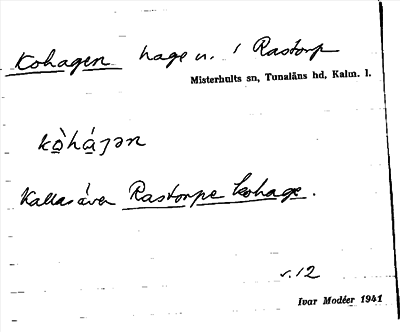 Kohagen hage n. i Rastorp
Misterhults sn, Tunaläns hd, Kalm. l.
kòhájən
Kallas även Rastorpe kohage.
s. 12
Ivar Modéer 1941